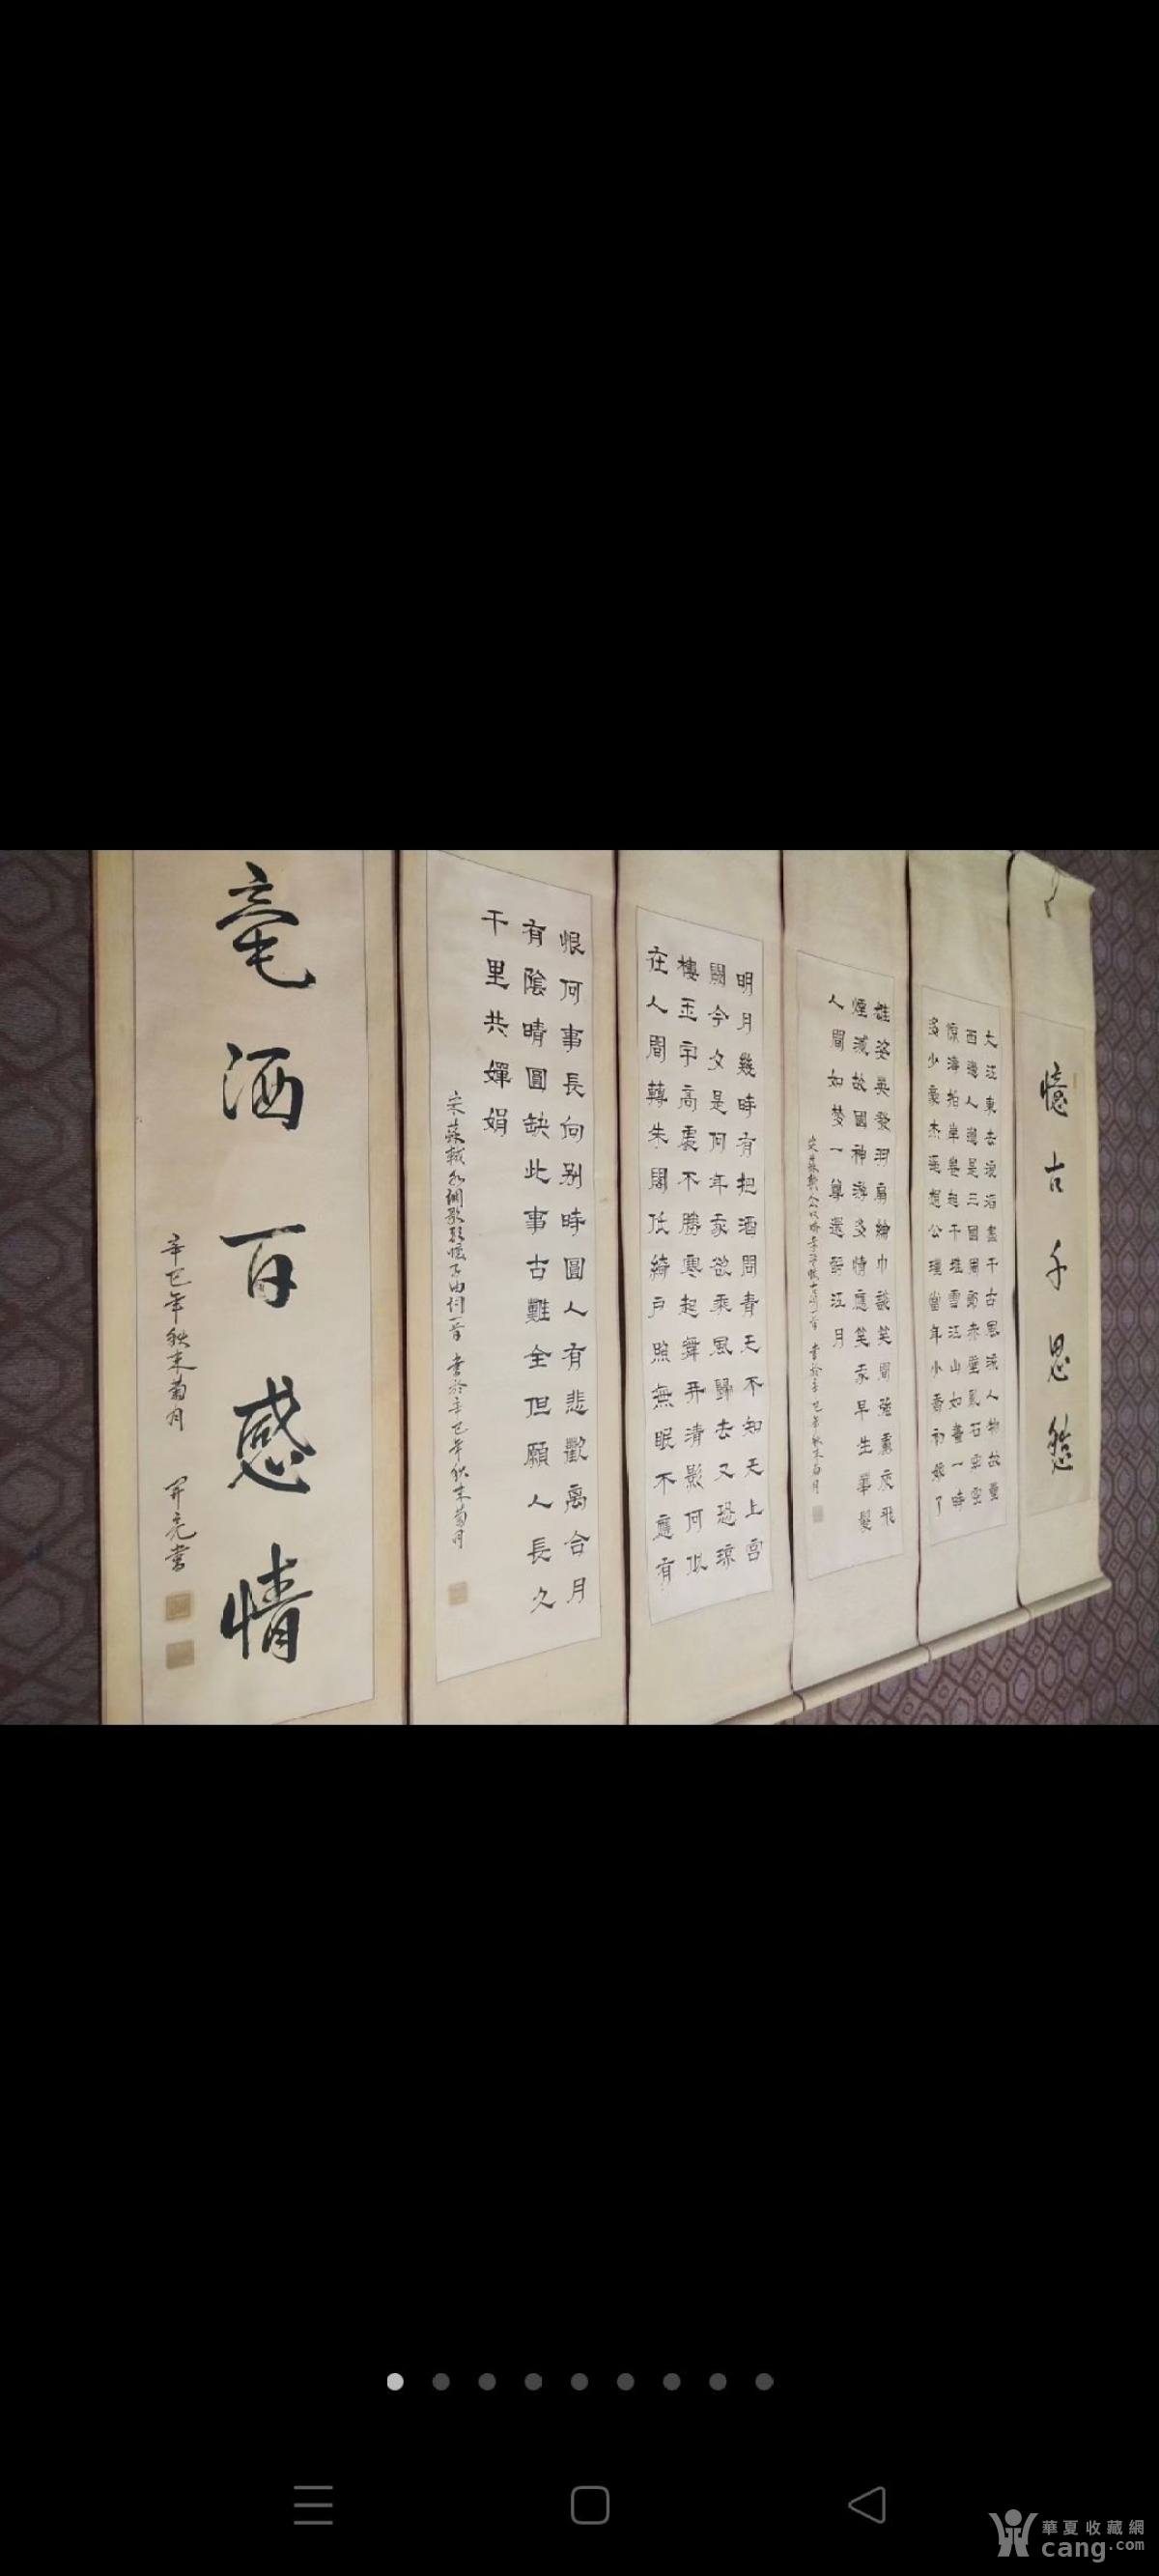 憶古千思
大江東去浪淘盡千古風流人物故壘
西邊人道是三國周郎赤壁亂石穿空
惊濤拍岸卷起千堆雪江山如畫一時
多少豪杰遥想公瑾當年小喬初嫁了
雄姿英發羽扇綸巾談笑間強虜灰飛
煙滅故國神游多情應笑我早生華髮
人間如梦一尊還酹江月
宋蘇軾念奴嬌赤壁懷古詞一首 書於辛巳年秋末菊月
明月幾時有把酒問青天不知天上宮
闕今夕是何年我欲乘風歸去又恐瓊
樓玉宇高處不勝寒起舞弄清影何似
在人間轉朱閣低綺户照無眠不應有
恨何事長向别時圓人有悲歡离合月
有陰晴圓缺此事古難全但願人長久
千里共嬋娟
宋蘇軾水調歌頭懷子由詞一首 書於辛巳年秋末菊月
毫洒百感情
辛巳年秋末菊月 开亮書
華夏收藏網
cang.com